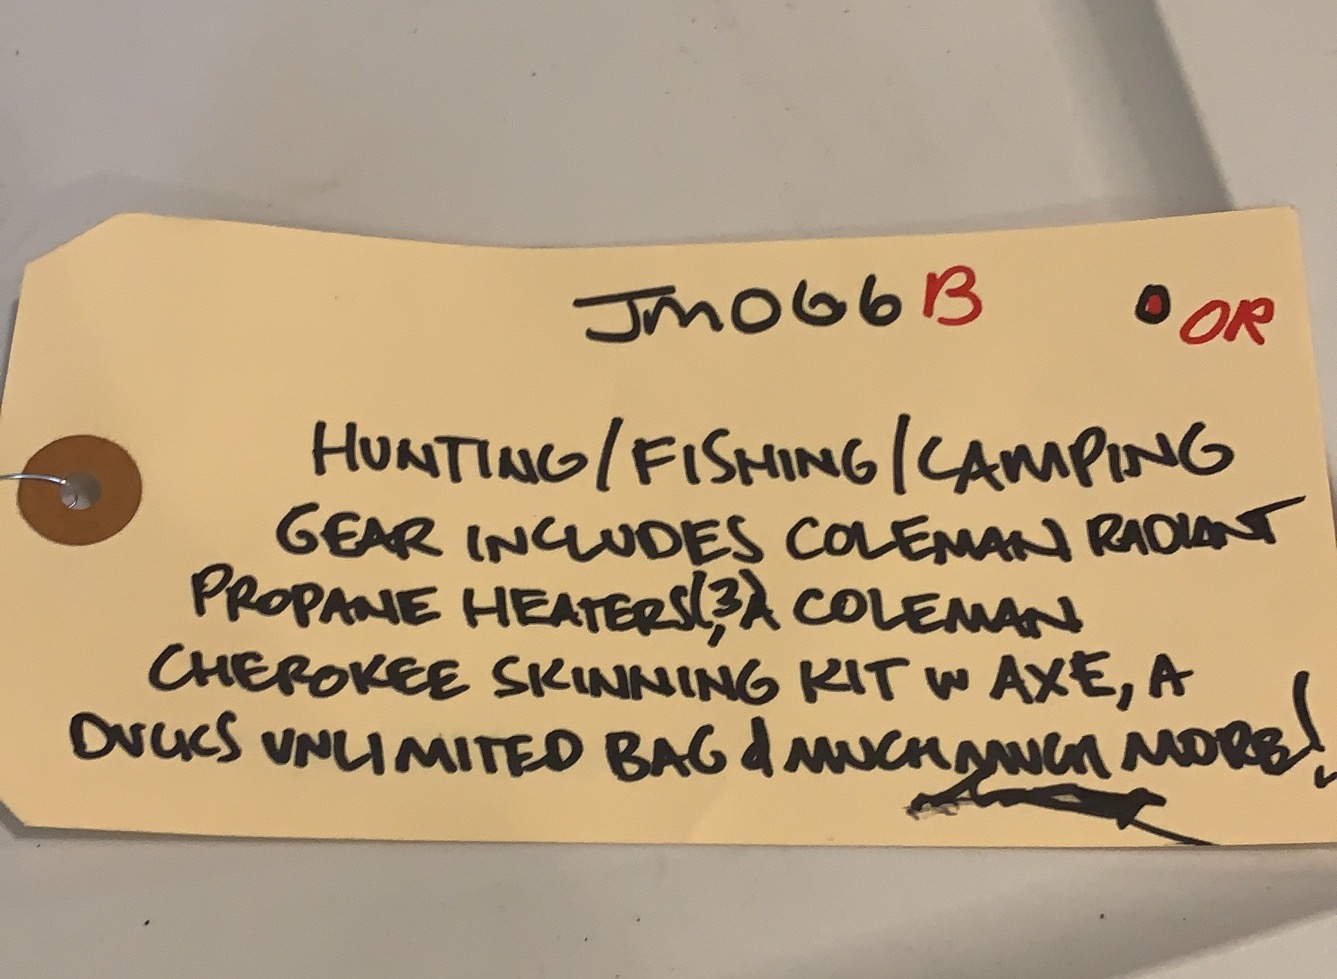 JM066B OR
HUNTING/FISHING/CAMPING
GEAR INCLUDES COLEMAN RADIANT
PROPANE HEATERS(3), A COLEMAN
CHEROKEE SKINNING KIT W AXE, A
DUCKS UNLIMITED BAG & MUCH MUCH MORE!